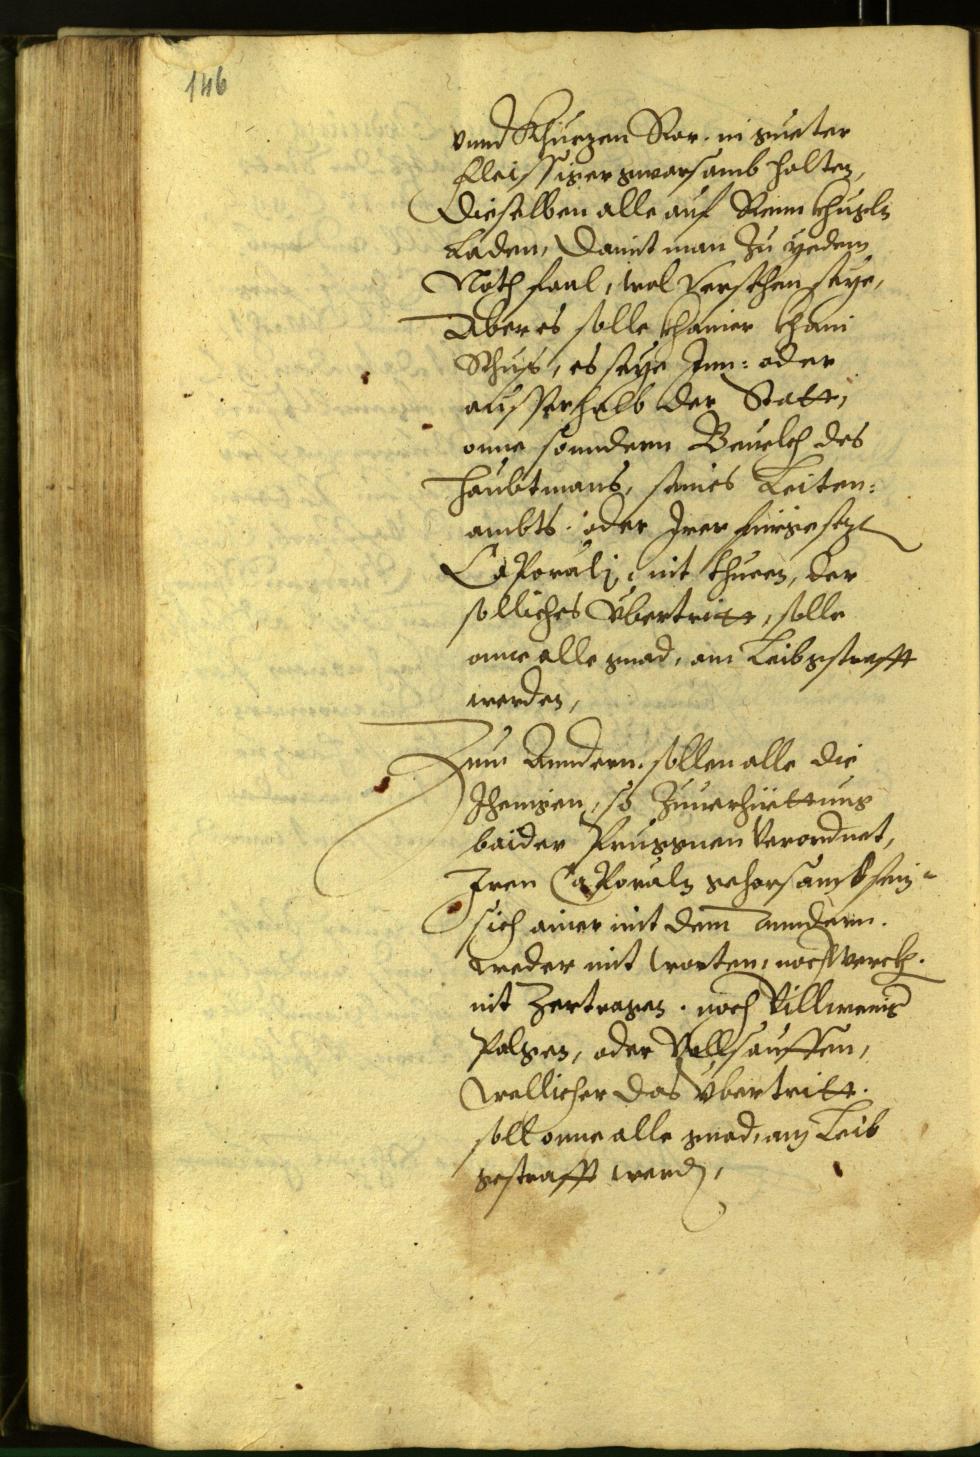 146
vnnd Khurzen Ror. in gueter
fleissiger gwarsamb halten,
Dieselben alle auf Renn khugln
Laden, Damit man Zu yedem
Nothfaal, wol versehen seye,
Aber es solle khainer khain
Schus, es seye Inn: oder
ausserhalb der Statt,
onne sonndern Beuelch des
Haubtmans, seines Leiten:
ambts. oder Irer fürgesezt
Caporali, nit thuen, der
solliches Vbertritt, solle
onne alle gnad, am Leib gstrafft
werden,
Zum Anndern. sollen alle die
Jhenigen, so Zuuerhüettung
baider Pruggnen verordnet,
Iren Caporaln gehorsamb sein
sich ainer mit dem anndern.
weder mit worten, noch werckh.
nit Zertragen. noch villwenig
Palgen, oder Vollsauffen,
wellicher das Vbertritt.
soll onne alle gnad, am Leib
gestrafft werden,